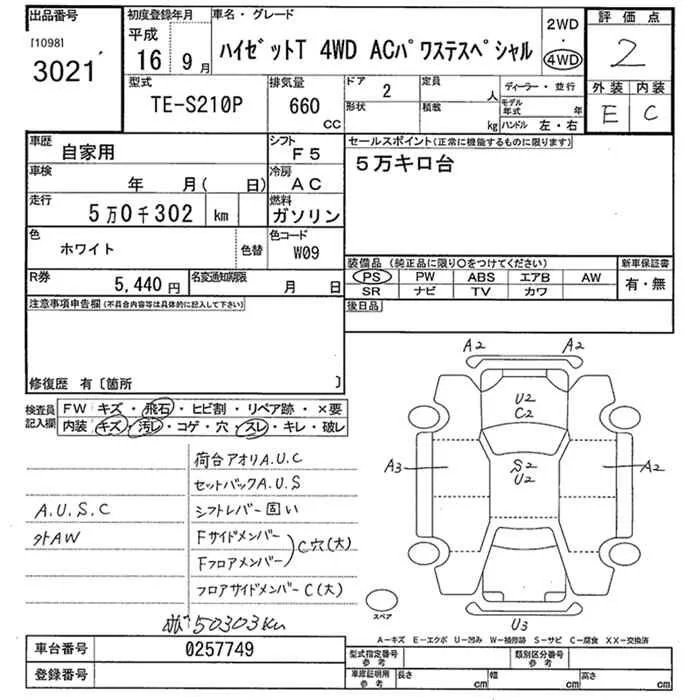 出品番号 初度登録年月 車名・グレード 2WD・4WD 評価点
[1098] 3021 平成 16 9月 ハイゼットT 4WD ACパワステスペシャル 2
型式 排気量 ドア 定員 ディーラー・並行 外装 内装
TE-S210P 660 CC 2 人 モデル年式 年 E C
形状 積載 kg ハンドル 左・右
車歴 自家用 シフト F5 セールスポイント(正常に機能するものに限ります)
車検 年 月( 日) 冷房 AC 5万キロ台
走行 5万0千302 km 燃料 ガソリン
色 ホワイト 色替 色コード W09
装備品(純正品に限り○をつけてください) 新車保証書
R券 5,440円 名変通知期限 月 日 PS PW ABS エアB AW 有・無
SR ナビ TV カワ
注意事項申告欄(不具合内容等は具体的に記入して下さい) 後日品
修復歴 有〔箇所 〕
検査員記入欄 FW キズ・飛石・ヒビ割・リペア跡・×要
内装 キズ・汚レ・コゲ・穴・スレ・キレ・破レ
荷台アオリA.U.C
セットバックA.U.S
A.U.S.C シフトレバー固い
外AW Fサイドメンバー
Fフロアメンバー C穴(大)
フロアサイドメンバーC(大)
50303km
A2 A2
U2
C2
A3 S2 A2
U2
U3
スペア
A-キズ E-エクボ U-凹み W-補修跡 S-サビ C-腐食 XX-交換済
車台番号 0257749 型式指定番号 参考 類別区分番号 参考
登録番号 車庫証明用 参考 長さ cm 幅 cm 高さ cm